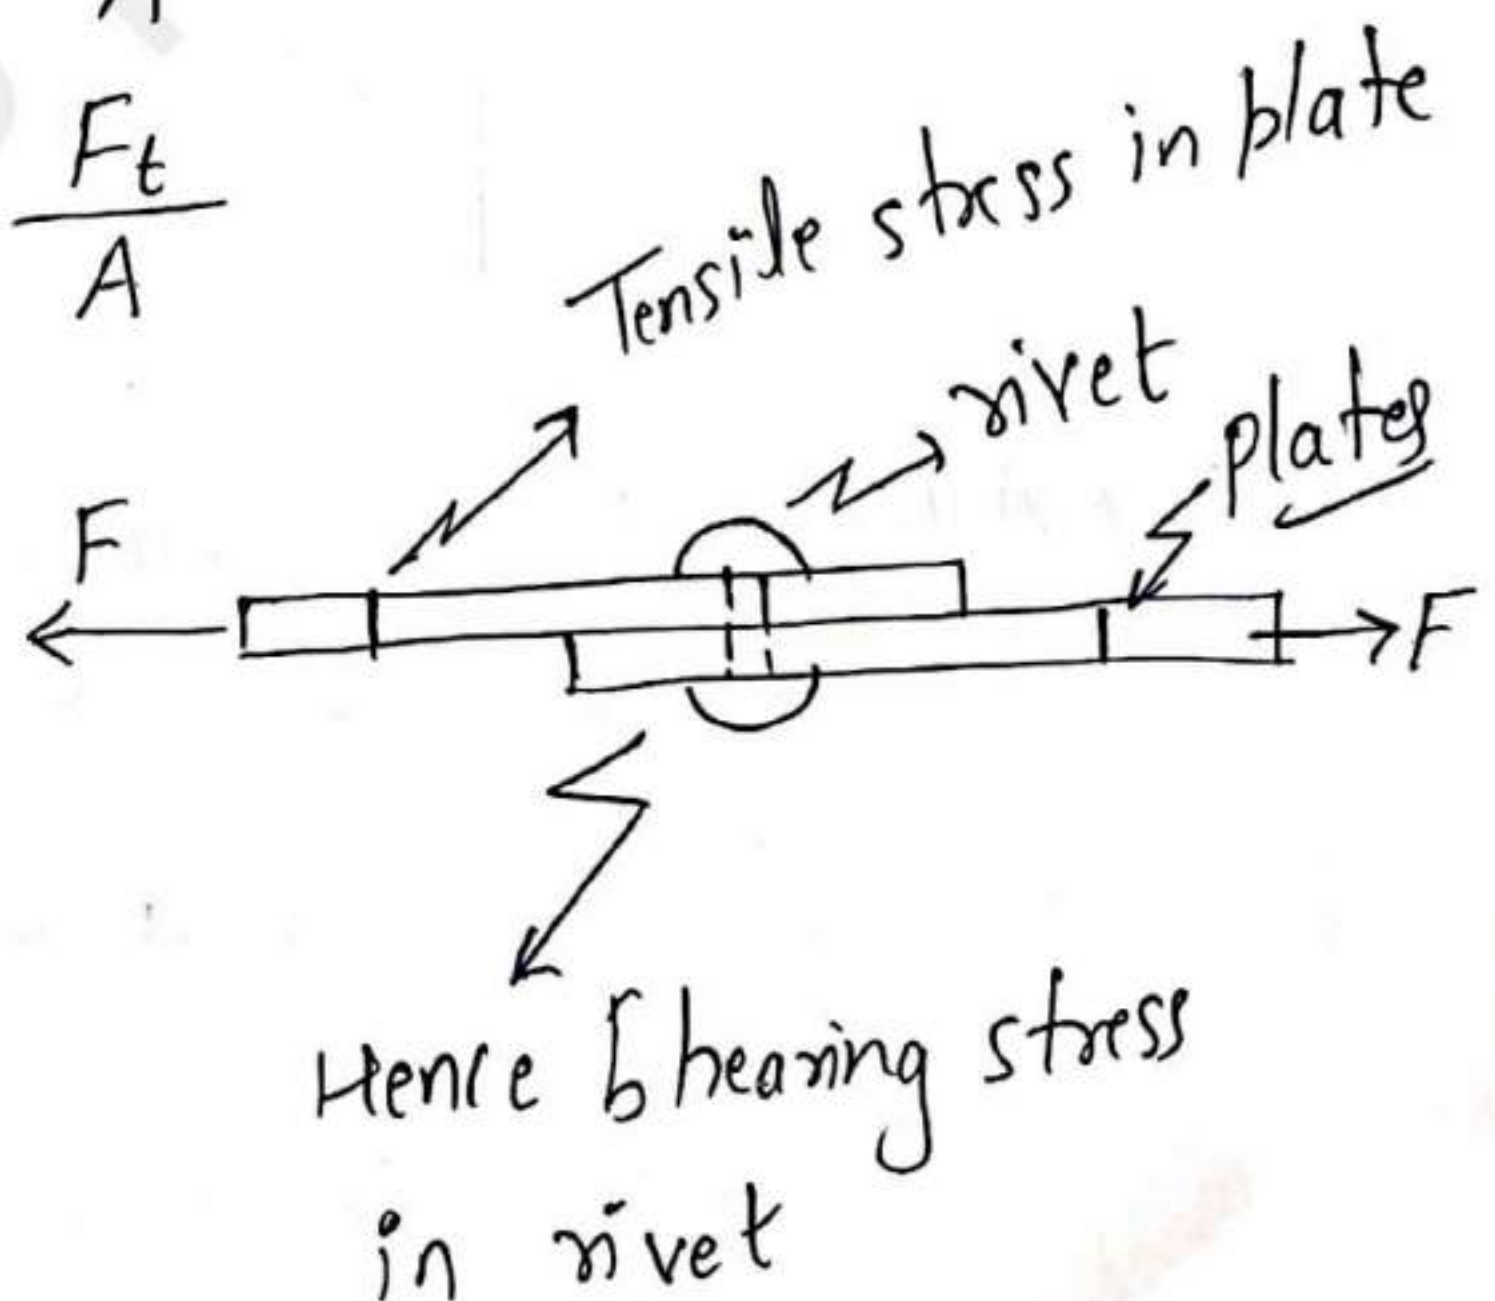 Ft
A
Tensile stress in plate
rivet
plates
F
F
Hence Shearing stress
in rivet